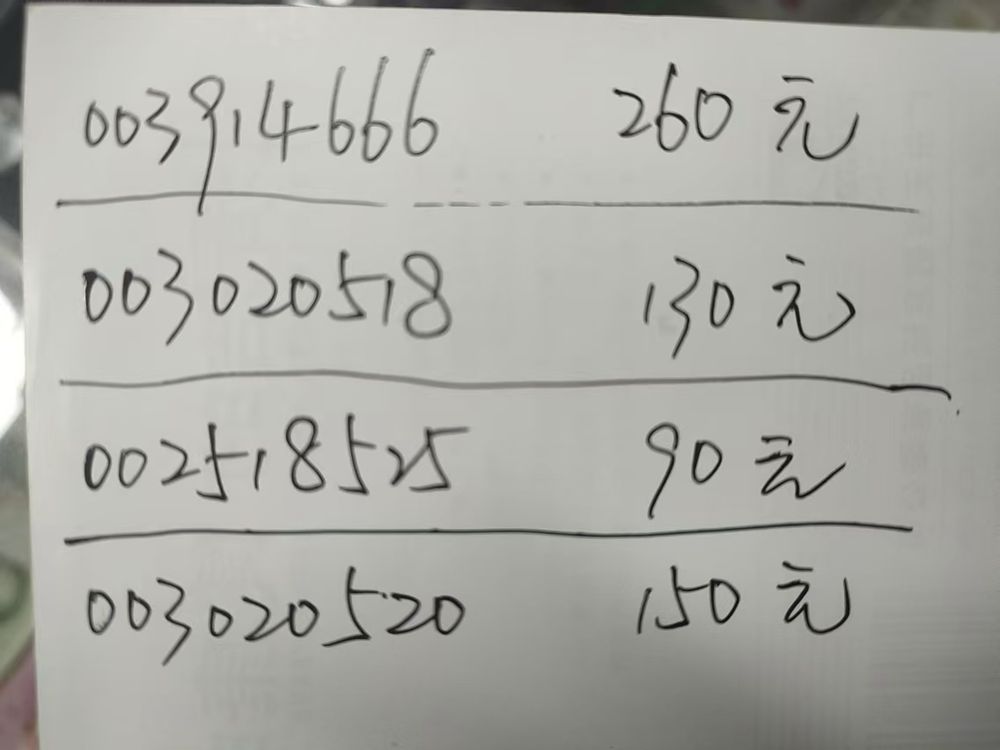 003914666 260元
003020518 130元
002518525 90元
003020520 150元